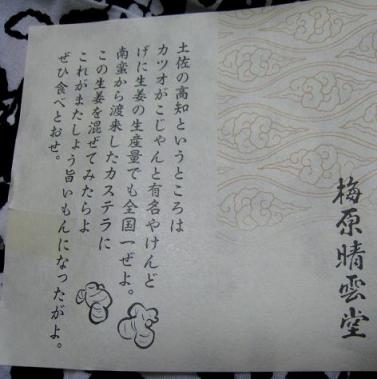 梅原晴雲堂
土佐の高知というところは
カツオがこじゃんと有名やけんど
げに生姜の生産量でも全国一ぜよ。
南蛮から渡来したカステラに
この生姜を混ぜてみたらよ
これがまたしよう旨いもんになったがよ。
ぜひ食べとおせ。